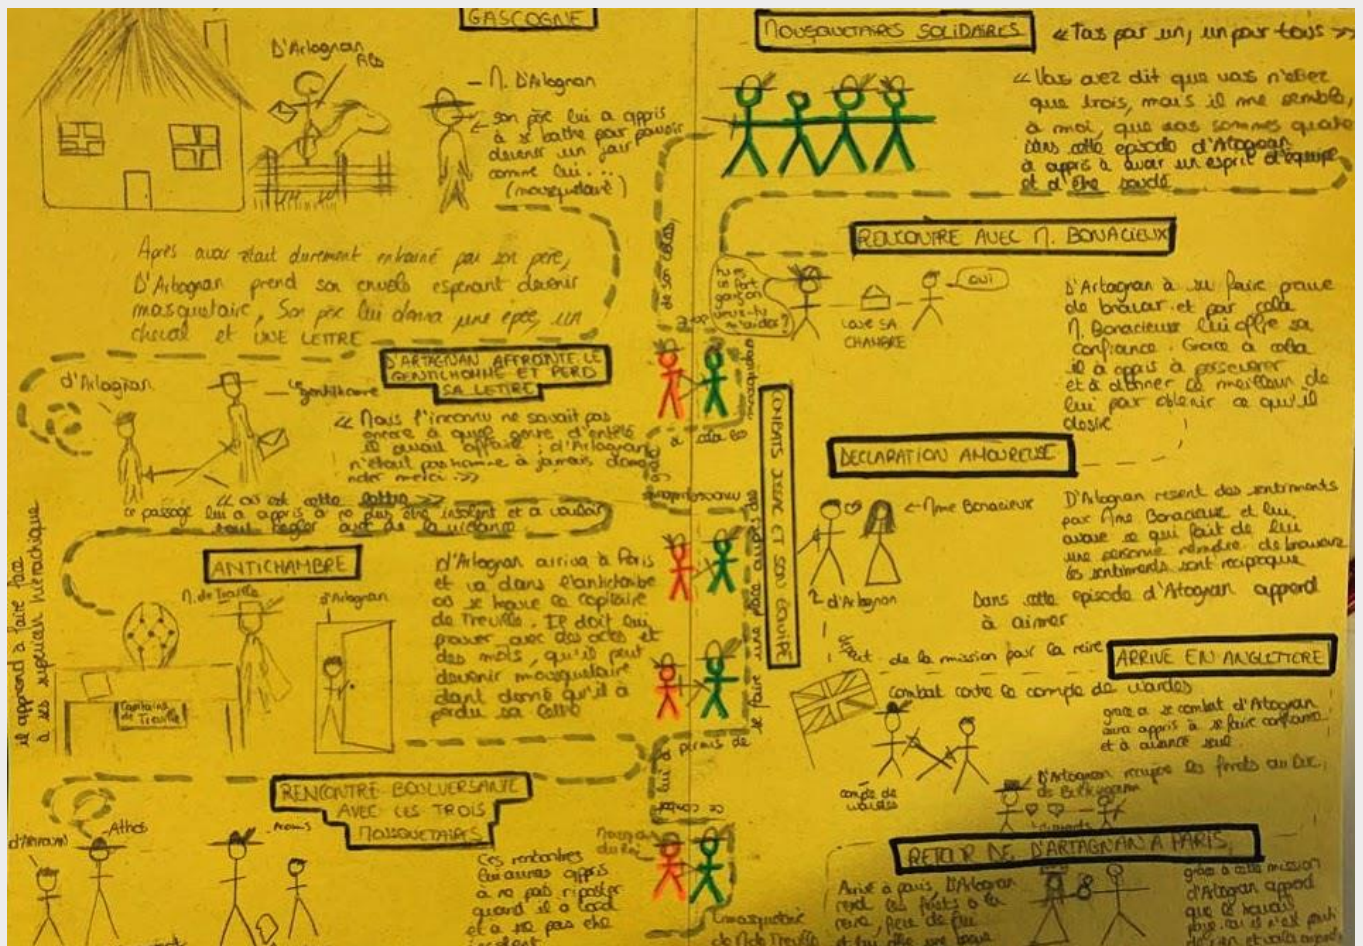 GASCOGNE
D'Artagnan
M. D'Artagnan
son père lui a appris
à se battre pour pouvoir
devenir un jour
comme lui...
(mousquetaire)
Après avoir était durement entrainé par son père,
D'Artagnan prend son envole esperant devenir
mousquetaire, Son père lui donna une épée, un
cheval et UNE LETTRE
D'ARTAGNAN AFFRONTE LE
GENTILHOMME ET PERD
SA LETTRE
d'Artagnan
Le gentilhomme
<< Mais l'inconnu ne savait pas
encore à quel genre d'entêté
il avait affaire ; d'Artagnan
n'était pas homme à jamais dema
nder merci. >>
<< où est cette lettre >>
ce passage lui a appris à ne plus être insolent et à vouloir
tout régler avec de la violence
il apprend à faire face
à ses supérieur hiérarchique
ANTICHAMBRE
M. de Treville
d'Artagnan
Capitaine
de Treville
d'Artagnan arrive à Paris
et va dans l'antichambre
où se trouve le capitaine
de Treville. Il doit lui
prouver avec des actes et
des mots, qu'il peut
devenir mousquetaire
étant donné qu'il à
perdu sa lettre
RENCONTRE BOULVERSANTE
AVEC LES TROIS
MOUSQUETAIRES
d'Artagnan
Athos
Aramis
Ces rencontres
lui auras appris
à ne pas riposter
quand il a tord
et a ne pas etre
insolent
MOUSQUETAIRES SOLIDAIRES
<< Tous pour un, un pour tous >>
<< Vous avez dit que vous n'étiez
que trois, mais il me semble,
à moi, que nous sommes quatre
Dans cette épisode d'Artagnan
à appris à avoir un esprit d'équipe
et d'être soudé
RENCONTRE AVEC M. BONACIEUX
tu es
fort
garçon
veux-tu
m'aider?
OUI
LOUE SA
CHAMBRE
D'Artagnan à su faire preuve
de bravour et par cela
M. Bonacieux lui offre sa
confiance. Grace à cela
il à appris à perseverer
et à donner le meilleur de
lui pour obtenir ce qu'il
désire
COMBATS JUSSAC ET SON ÉQUIPE
lui a permis de
se faire une place auprès des
mousquetaires
DECLARATION AMOUREUSE
Mme Bonacieux
d'Artagnan
D'Artagnan resent des sentiments
pour Mme Bonacieux et lui
avoue ce qui fait de lui
une personne remplie de bravoure
les sentiments sont reciproque
Dans cette episode d'Artagnan apprend
à aimer.
de la mission pour la reine
ARRIVE EN ANGLETTERE
combat contre le compte de Wardes
compte de
Wardes
grace a se combat d'Artagnan
aura appris à se faire confiance
et à avancé seul.
D'Artagnan recupere les ferrets au Duc
de Buckingham
RETOUR DE D'ARTAGNAN A PARIS
Arrivé à paris, D'Artagnan
rend les ferrets a la
reine, fiere de lui
et lui offre une bague
grâce a cette mission
d'Artagnan apprend
que le travail